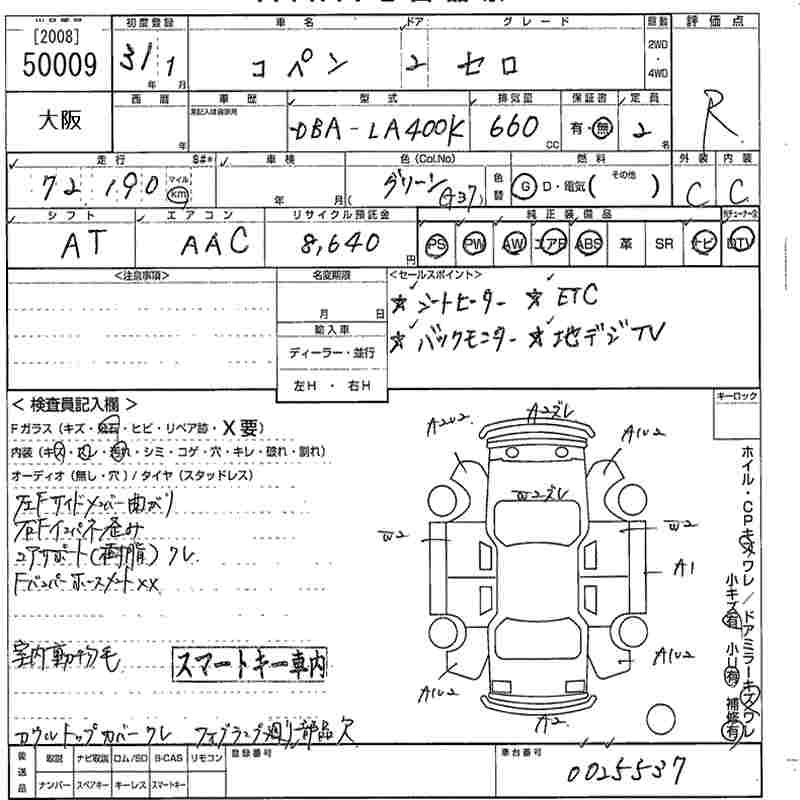 出品番号 初度登録 車名 ドア グレード 駆動 評価点
[2008] 50009 31年 1月 コペン 2 セロ 2WD・4WD R
大阪 西暦 年 車歴 型式 排気量 保証書 定員
DBA-LA400K 660 CC 有・無 2 名
走行 S#* 車検 色(Col.No) 燃料 外装 内装
72,190 マイル km 年 月( グリーン (G37) 色替 G D・電気( その他 ) C C
シフト エアコン リサイクル預託金 純正装備品
AT AAC 8,640 円 PS PW AW エアB ABS 革 SR ナビ DTV
<注意事項> 名変期限 <セールスポイント>
月 日 ☆シートヒーター ☆ETC
輸入車 ☆バックモニター ☆地デジTV
ディーラー・並行
左H・右H
<検査員記入欄> キーロック
Fガラス(キズ・飛石・ヒビ・リペア跡・X要)
内装(キズ・汚れ・シミ・コゲ・穴・キレ・破れ・割れ)
オーディオ(無し・穴)/タイヤ(スタッドレス)
左Fサイドメンバー曲がり
右Fインパネ歪み
コアサポート(樹脂)ワレ
FバンパーホースメントXX
室内動物毛 スマートキー車内
カウルトップカバーワレ フォグランプ廻り部品欠
A2ズレ
A2U2 A1U2
W2ズレ
W2 W2
A1
A1U2 A1U2
A2
ホイル・CPキズワレ/ドアミラーキズワレ
小キズ有 小U有 補修有
後送品 取説 ナビ取説 ロム/SD B-CAS リモコン 登録番号 車台番号
ナンバー スペアキー キーレス スマートキー 0025537